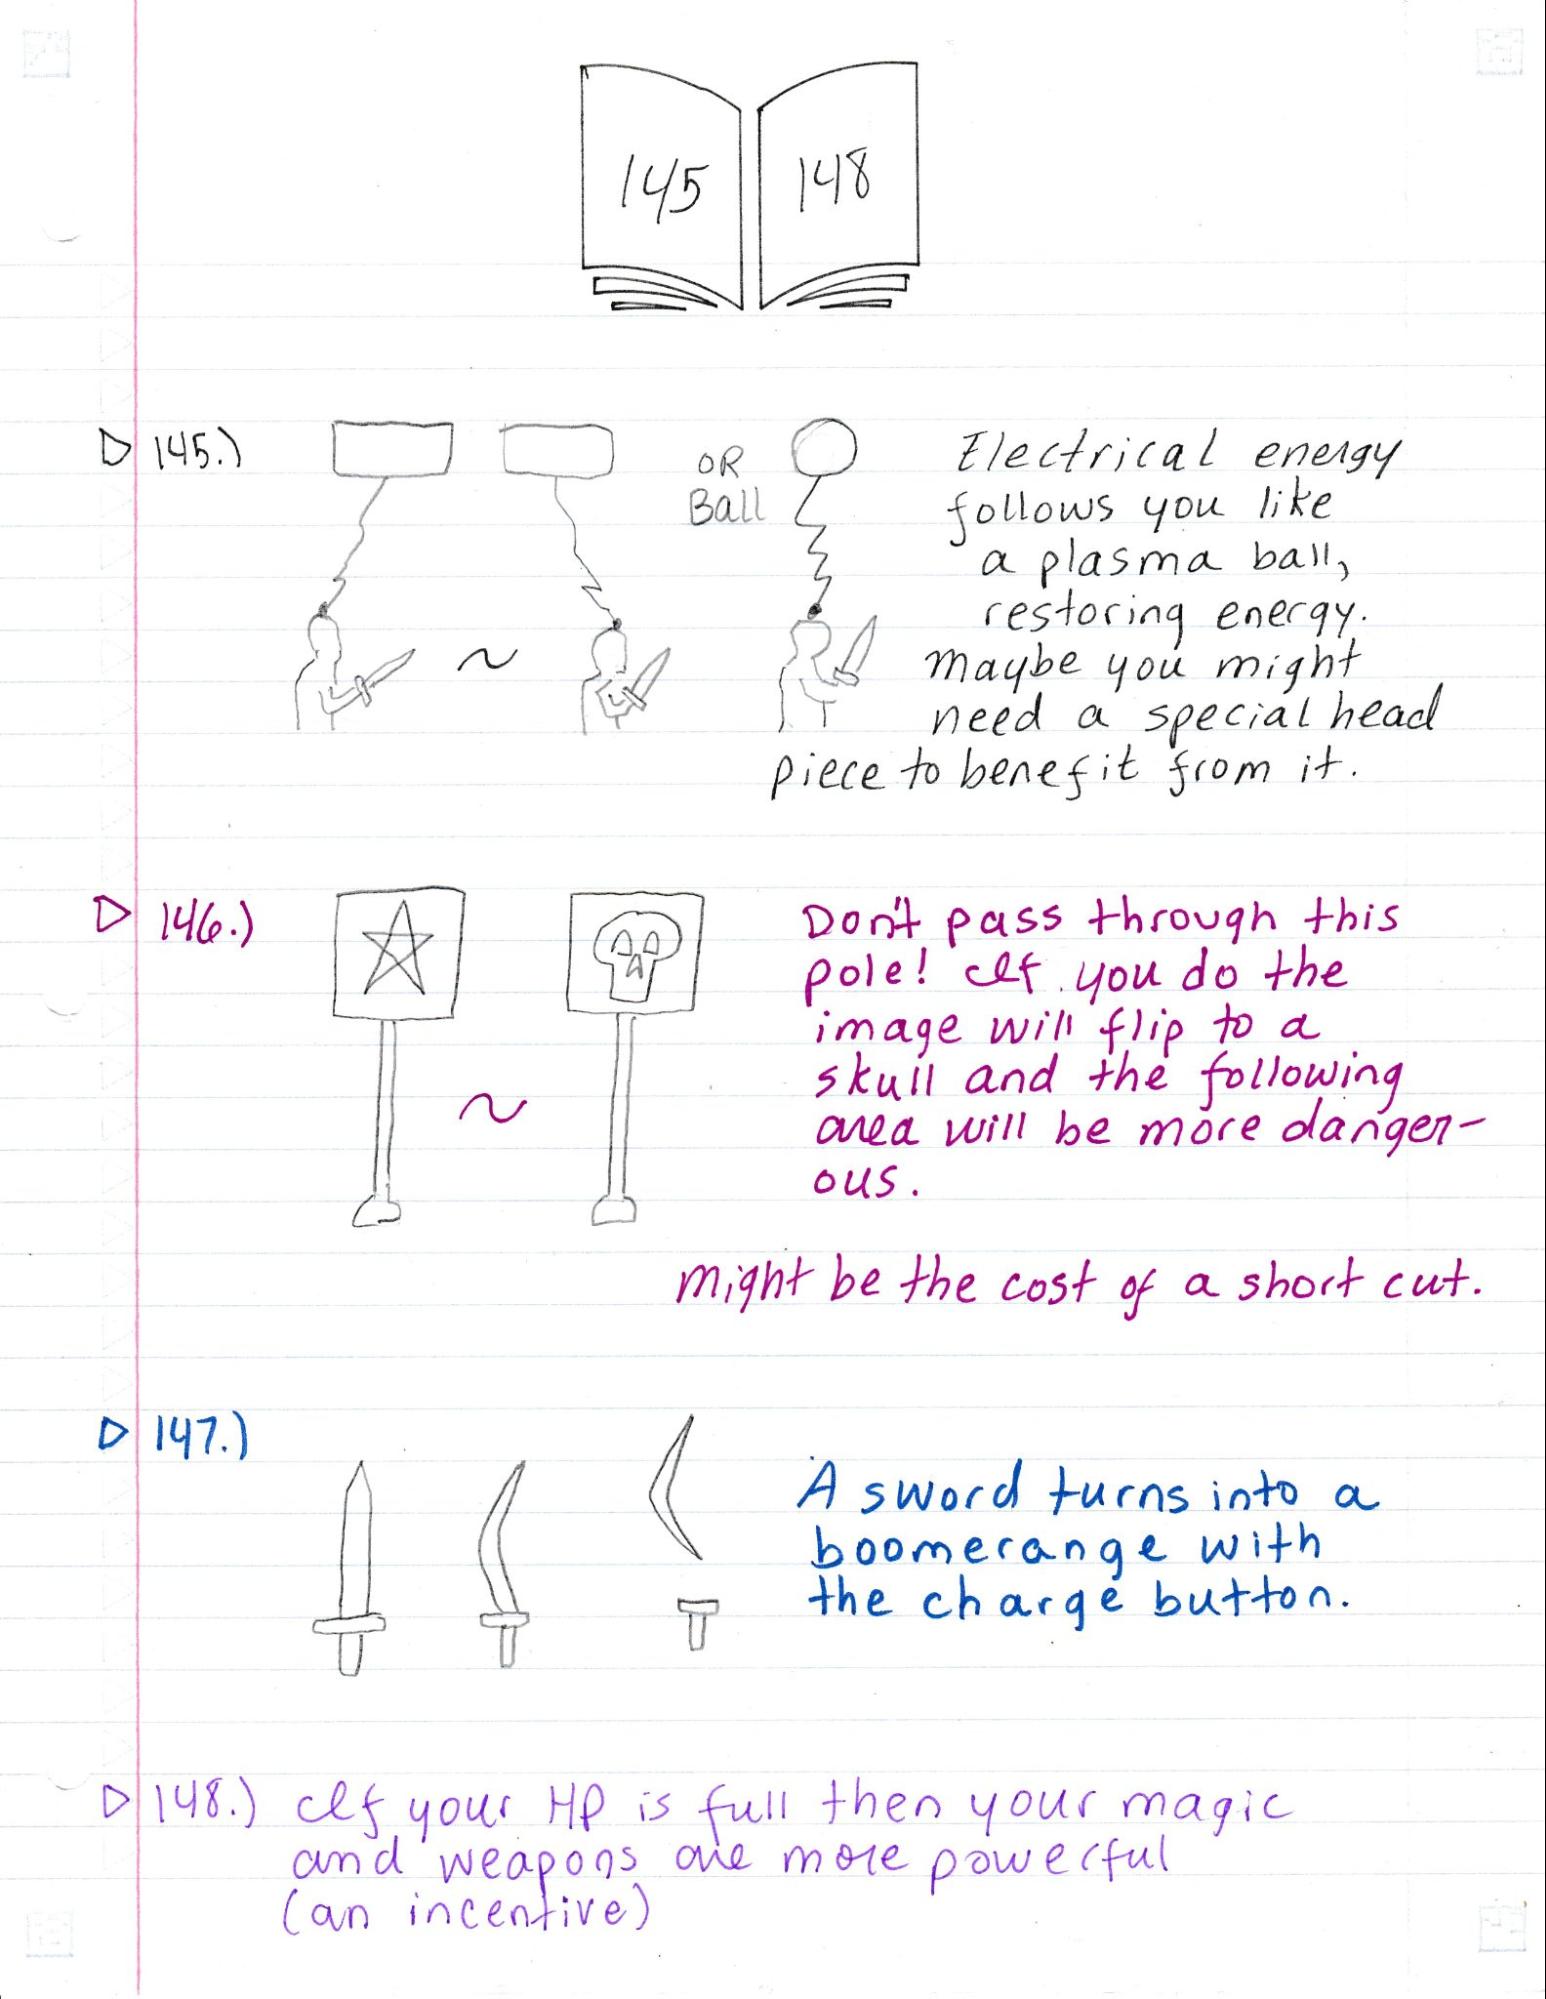 145 148
145.)
OR
Ball
Electrical energy
follows you like
a plasma ball,
restoring energy.
Maybe you might
need a special head
piece to benefit from it.
146.)
Don't pass through this
pole! If you do the
image will flip to a
skull and the following
area will be more danger-
ous.
might be the cost of a short cut.
147.)
A sword turns into a
boomerange with
the charge button.
148.) If your HP is full then your magic
and weapons are more powerful
(an incentive)